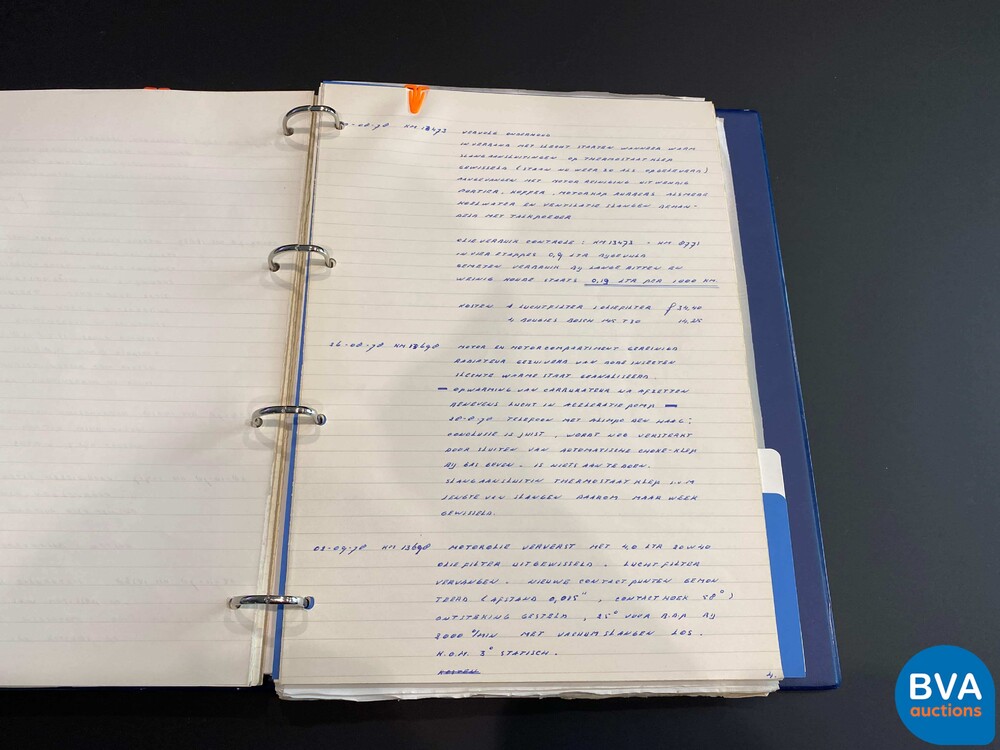 -08-78 KM 13473 VERVOLG ONDERHOUD
IN VERBAND MET SLECHT STARTEN WANNEER WARM
SLANGAANSLUITINGEN OP THERMOSTAATKLEP
GEWISSELD (STAAN NU WEER ZO ALS OPGELEVERD)
AANGEVANGEN MET MOTOR REINIGING UITWENDIG
PORTIER, KOFFER, MOTORKAP RUBBERS ALSMEDE
KOELWATER EN VENTILATIE SLANGEN BEHAN-
DELD MET TALKPOEDER
OLIEVERBUIK CONTROLE: KM 13473 - KM 8771
IN VIER ETAPPES 0,9 LTR BIJGEVULD
GEMETEN VERBRUIK BIJ LANGE RITTEN EN
WEINIG KOUDE STARTS 0,19 LTR PER 1000 KM.
KOSTEN 1 LUCHTFILTER 1 OLIEFILTER ƒ 34,40
4 BOUGIES BOSCH T30 14,25
26-08-78 KM 13698 MOTOR EN MOTORCOMPARTIMENT GEREINIGD
RADIATEUR GEZUIVERD VAN DODE INSECTEN
SLECHTE WARME START GEANALISEERD.
- OPWARMING VAN CARBURATEUR NA AFZETTEN
BENEVENS LUCHT IN ACCELERATIEPOMP -
28-8-78 TELEFOON MET ALIMPO DEN HAAG:
CONCLUSIE IS JUIST, WORDT NOG VERSTERKT
DOOR SLUITEN VAN AUTOMATISCHE CHOKE-KLEP
BIJ GAS GEVEN. IS NIETS AAN TE DOEN.
SLANGAANSLUITIN THERMOSTAAT KLEP I.V.M
LENGTE VAN SLANGEN DAAROM MAAR WEER
GEWISSELD.
02-09-78 KM 13698 MOTOROLIE VERVERST MET 4,0 LTR 20W40
OLIEFILTER UITGEWISSELD. LUCHTFILTER
VERVANGEN. NIEUWE CONTACTPUNTEN GEMON
TEERD (AFSTAND 0,025", CONTACTHOEK 58°)
ONTSTEKING GESTELD, 25° VOOR B.D.P. BIJ
2000 °/MIN MET VACUUMSLANGEN LOS.
K.O.M. 3° STATISCH.
KOSTEN
4.
BVA
auctions